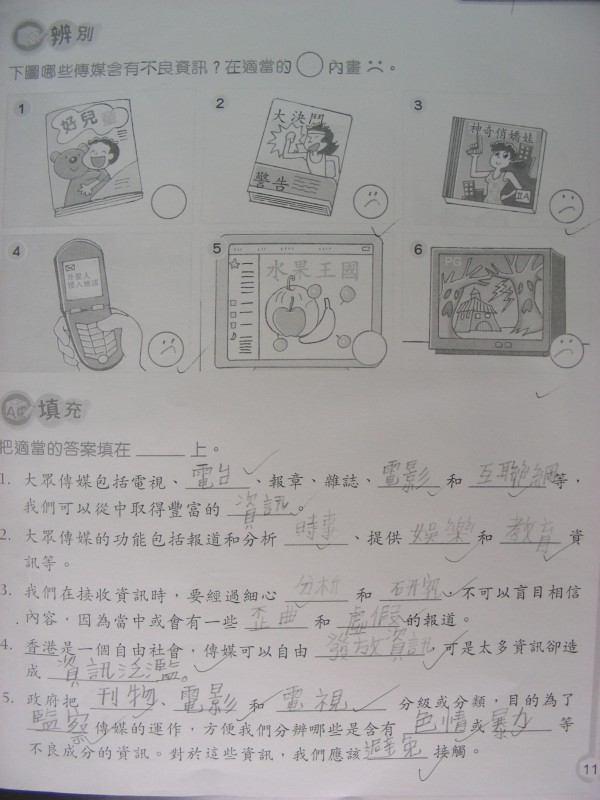 辨別
下圖哪些傳媒含有不良資訊？在適當的○內畫☹。
1
2
3
好兒童
大決鬥
警告
神奇俏嬌娃
IIA
4
5
6
水果王國
PG
填充
把適當的答案填在______上。
1. 大眾傳媒包括電視、電台、報章、雜誌、電影和互聯網等，
我們可以從中取得豐富的資訊。
2. 大眾傳媒的功能包括報道和分析時事、提供娛樂和教育資
訊等。
3. 我們在接收資訊時，要經過細心分析和研究，不可以盲目相信
內容，因為當中或會有一些歪曲和虛假的報道。
4. 香港是一個自由社會，傳媒可以自由發放資訊，可是太多資訊卻造
成資訊泛濫。
5. 政府把刊物、電影和電視分級或分類，目的為了
監察傳媒的運作，方便我們分辨哪些是含有色情或暴力等
不良成分的資訊。對於這些資訊，我們應該避免接觸。
11